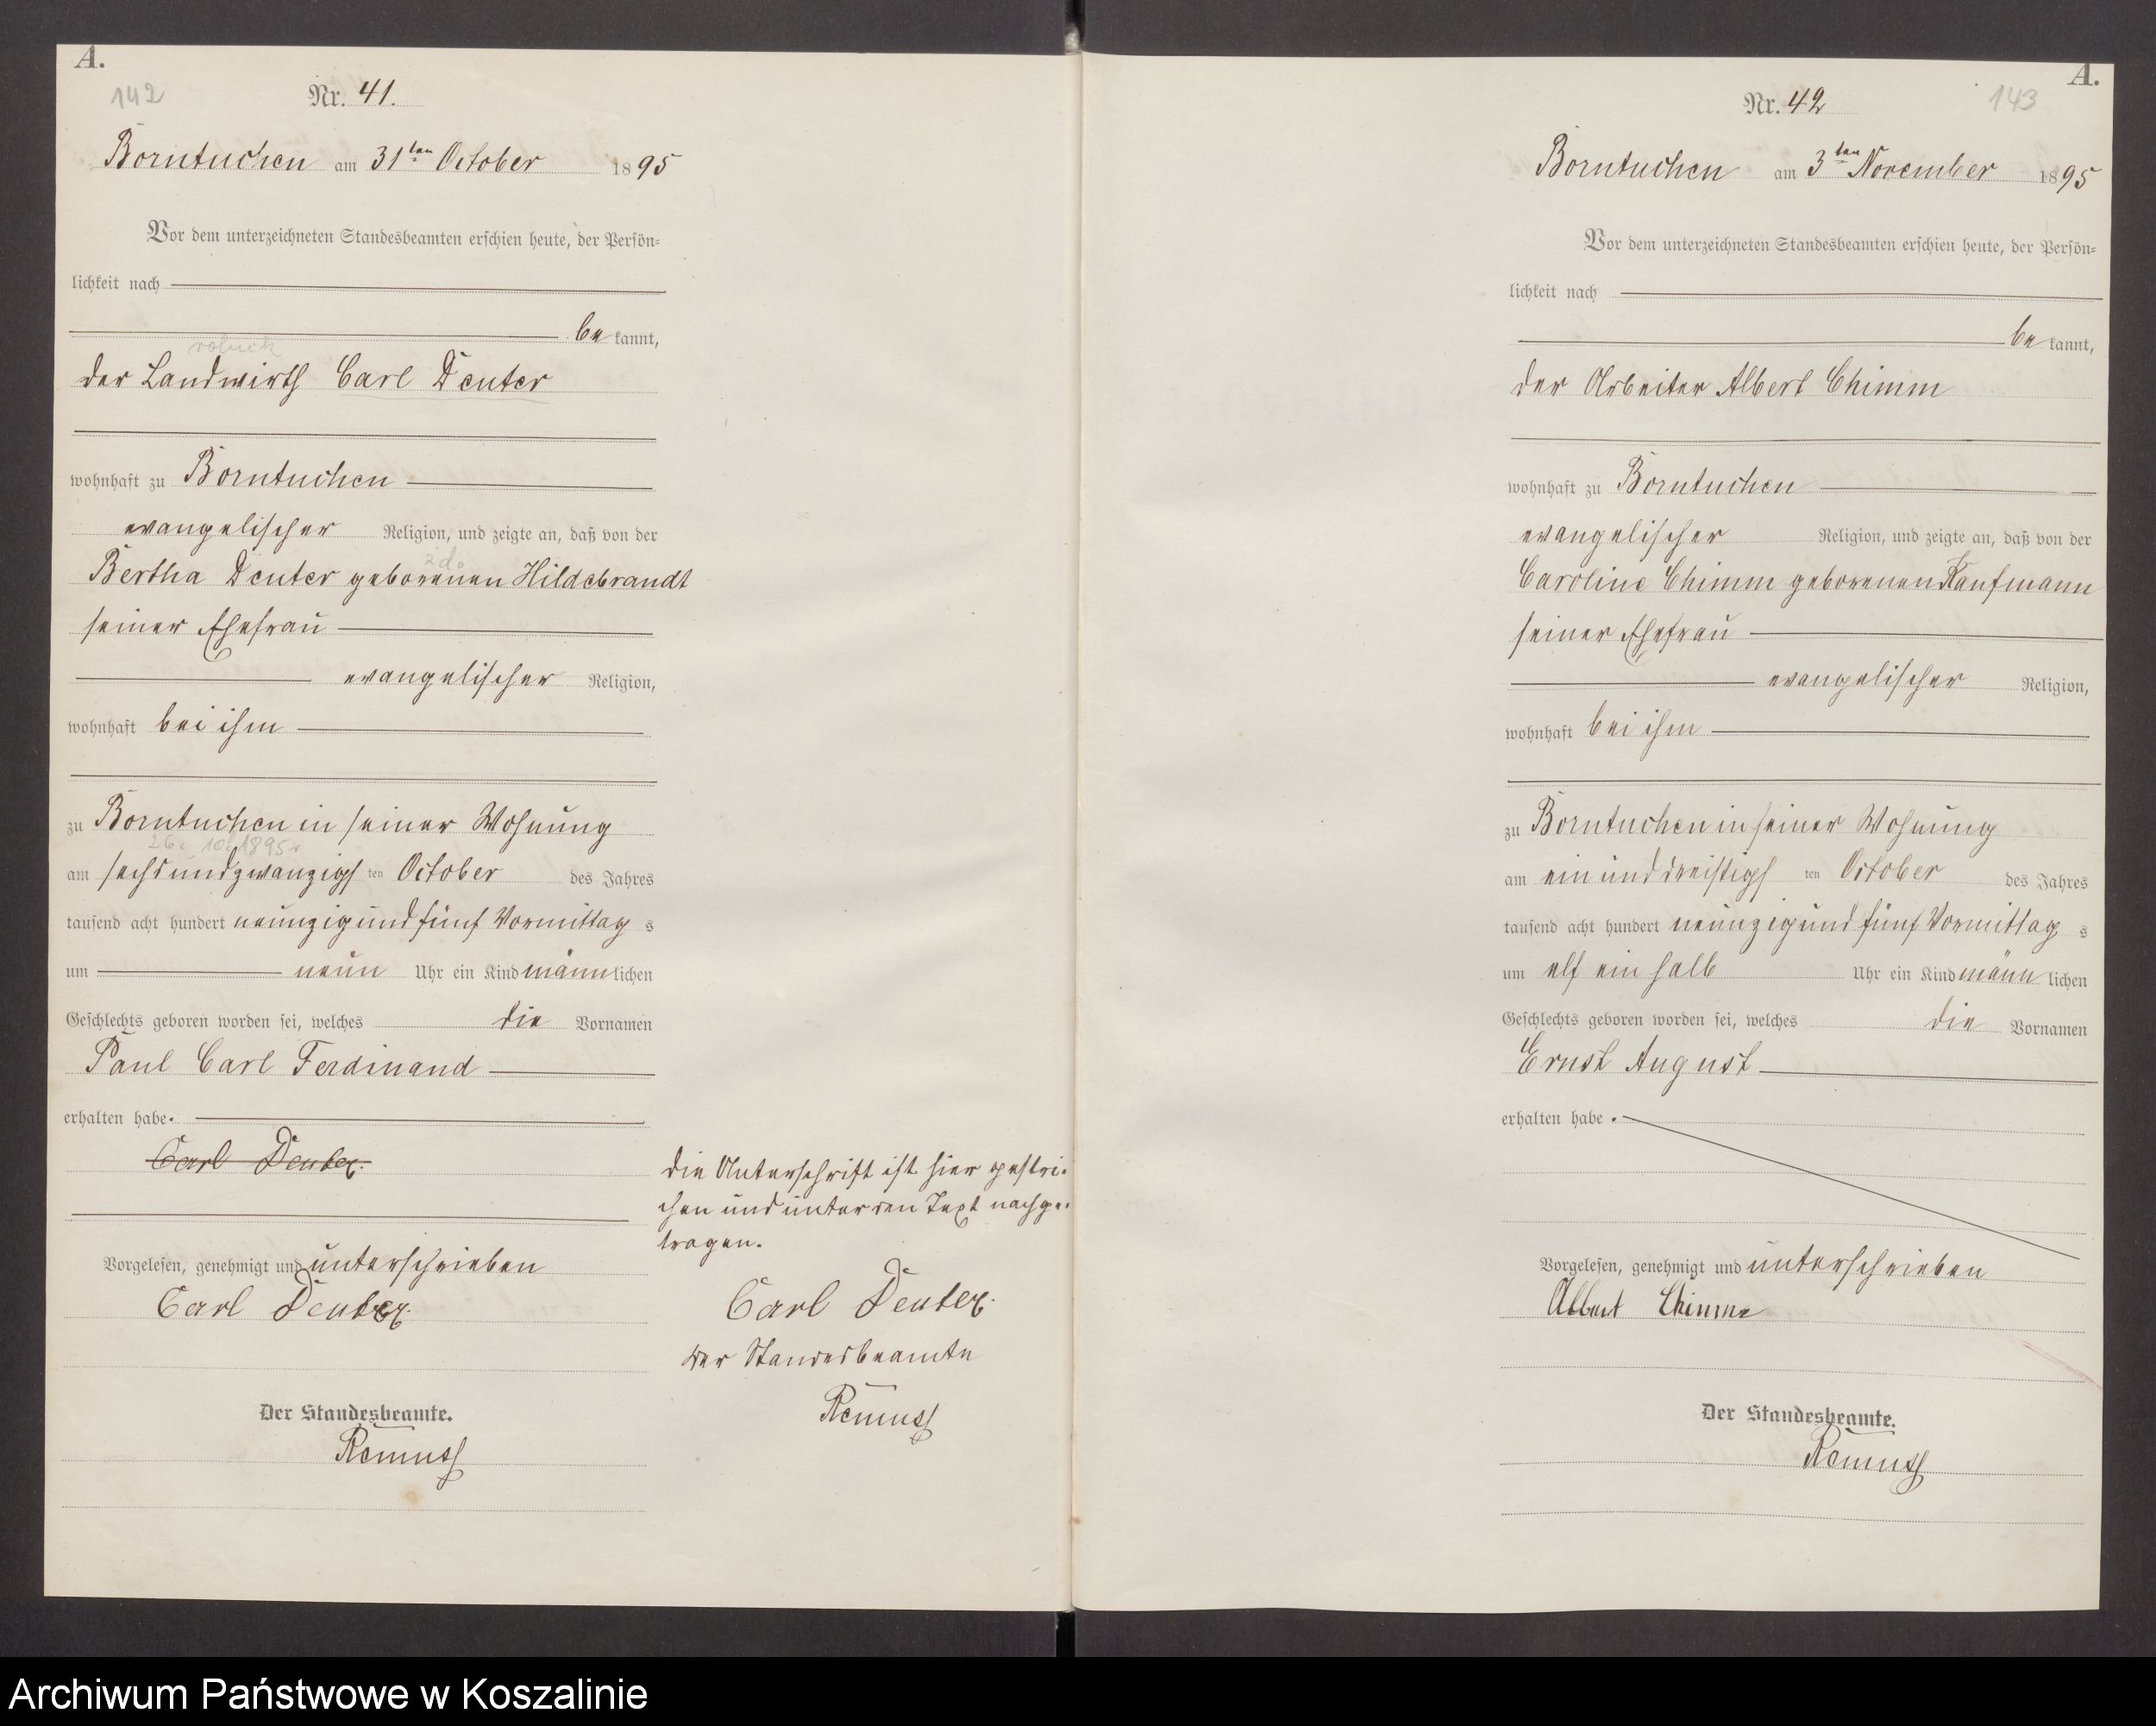 A.
142
Nr. 41.
Borntuchen am 31ten October 1895
Vor dem unterzeichneten Standesbeamten erschien heute, der Persön=
lichkeit nach
be kannt,
rolnik
der Landwirth Carl Deuter
wohnhaft zu Borntuchen
evangelischer Religion, und zeigte an, daß von der
Bertha Deuter geborenen Hildebrandt
seiner Ehefrau
evangelischer Religion,
wohnhaft bei ihm
zu Borntuchen in seiner Wohnung
26. 10. 1895
am sechsundzwanzigsten October des Jahres
tausend acht hundert neunzig und fünf Vormittags
um neun Uhr ein Kind männlichen
Geschlechts geboren worden sei, welches die Vornamen
Paul Carl Ferdinand
erhalten habe.
Carl Deuter.
Vorgelesen, genehmigt und unterschrieben
Carl Deuter.
Der Standesbeamte.
Remus
die Unterschrift ist hier gestri-
chen und unter den Text nachge-
tragen.
Carl Deuter.
der Standesbeamte
Remus
A.
143
Nr. 42
Borntuchen am 3ten November 1895
Vor dem unterzeichneten Standesbeamten erschien heute, der Persön=
lichkeit nach
be kannt,
der Arbeiter Albert Chimm
wohnhaft zu Borntuchen
evangelischer Religion, und zeigte an, daß von der
Caroline Chimm geborenen Kaufmann
seiner Ehefrau
evangelischer Religion,
wohnhaft bei ihm
zu Borntuchen in seiner Wohnung
am ein und dreißigsten October des Jahres
tausend acht hundert neunzig und fünf Vormittags
um elf ein halb Uhr ein Kind männlichen
Geschlechts geboren worden sei, welches die Vornamen
Ernst August
erhalten habe.
Vorgelesen, genehmigt und unterschrieben
Albert Chimm
Der Standesbeamte.
Remus
Archiwum Państwowe w Koszalinie